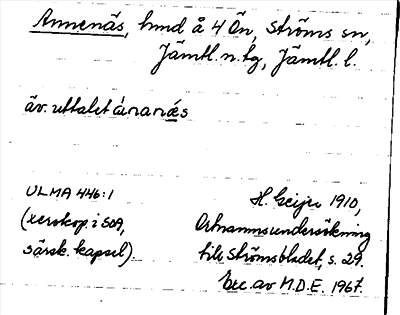 Annenäs, hmd å 4 Ön, Ströms sn,
Jämtl. n. tg, Jämtl. l.
äv. uttalet ánanǽs
ULMA 446:1
(xerokop. i SOA,
särsk. kapsel).
H. Geijer 1910,
Ortnamnsundersökning
till Strömsbladet, s. 29.
Exc. av M.D.E. 1967.